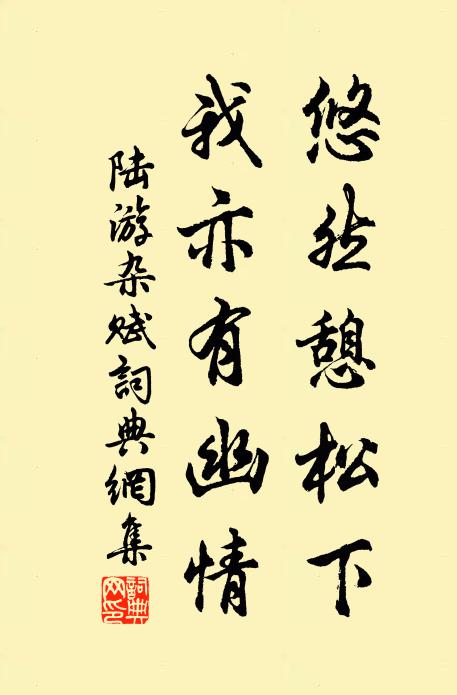 悠然憩松下
我亦有幽情
陆游杂赋詞典網集
詞典网印